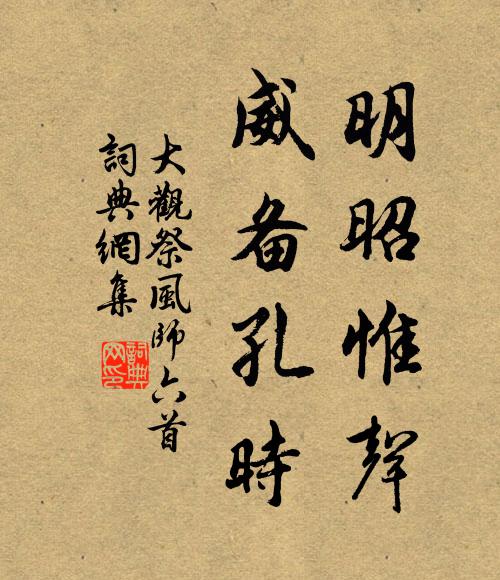 明昭惟聲
威备孔時
大觀祭風師六首
詞典網集
詞典
网印